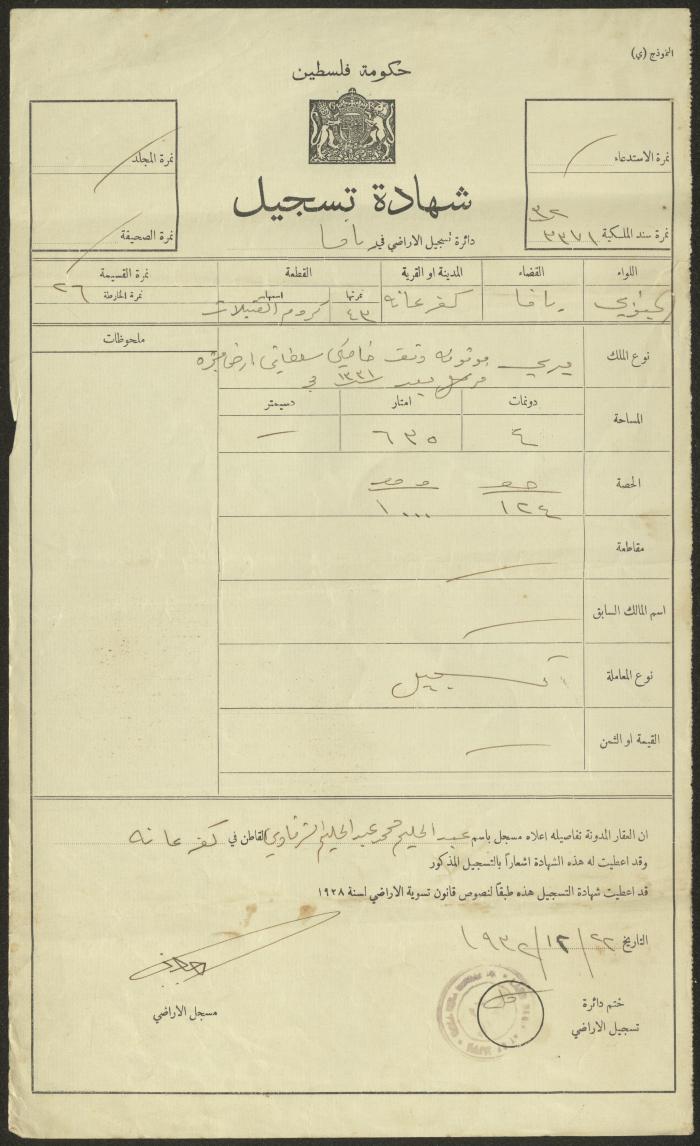 النموذج (ي)
حكومة فلسطين
نمرة الاستدعاء
نمرة سند الملكية ٣٣٧١ / ٣٢
نمرة المجلد
نمرة الصحيفة
شهادة تسجيل
دائرة تسجيل الاراضي في يافا
اللواء القضاء المدينة او القرية القطعة نمرة القسيمة
نمرتها اسمها نمرة الخارطة
الجنوبي يافا كفرعانه ٤٣ كروم القبيلات ٢٦
ملحوظات
نوع الملك ميري موقوفه وقف خاصكي سلطاني
١٣٣١
المساحة دونمات امتار دسيمتر
٤ ٦٣٥ —
الحصة حصه
١٢٤ ١٠٠٠
مقاطعة
اسم المالك السابق
نوع المعاملة تسجيل
القيمة او الثمن
ان العقار المدونة تفاصيله اعلاه مسجل باسم عبد الحليم محمد عبد الحليم الشرقاوي القاطن في كفر عانه
وقد اعطيت له هذه الشهادة اشعاراً بالتسجيل المذكور
قد اعطيت شهادة التسجيل هذه طبقاً لنصوص قانون تسوية الاراضي لسنة ١٩٢٨
التاريخ ٢٢/١٢/١٩٣٢
ختم دائرة
تسجيل الاراضي
مسجل الاراضي